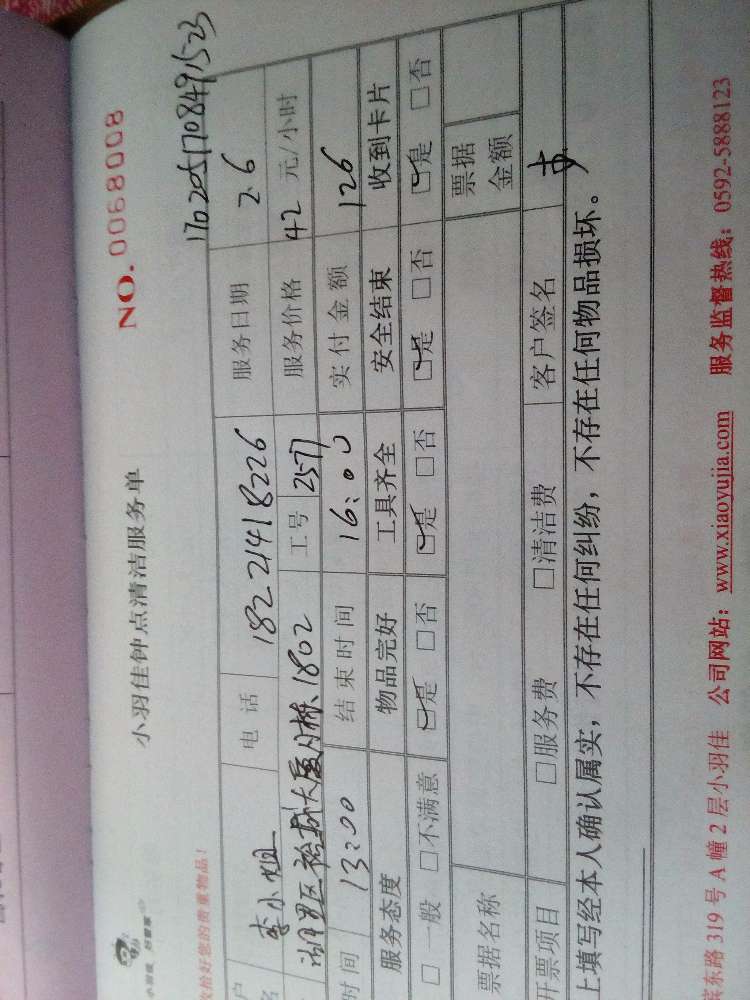 小羽佳 好管家
小羽佳钟点清洁服务单
NO. 0068008
收拾好您的贵重物品！
1702051708491523
户名 李小姐 电话 18221418226 服务日期 2.6
湖里区 大厦 1802 工号 2577 服务价格 42 元/小时
时间 13:00 结束时间 16:00 实付金额 126
服务态度 物品完好 工具齐全 安全结束 收到卡片
□一般 □不满意 ☑是 □否 ☑是 □否 ☑是 □否 ☑是 □否
票据名称 票据金额
开票项目 □服务费 □清洁费 客户签名
上填写经本人确认属实，不存在任何纠纷，不存在任何物品损坏。
滨东路 319 号 A 幢 2 层小羽佳 公司网站：www.xiaoyujia.com 服务监督热线：0592-5888123